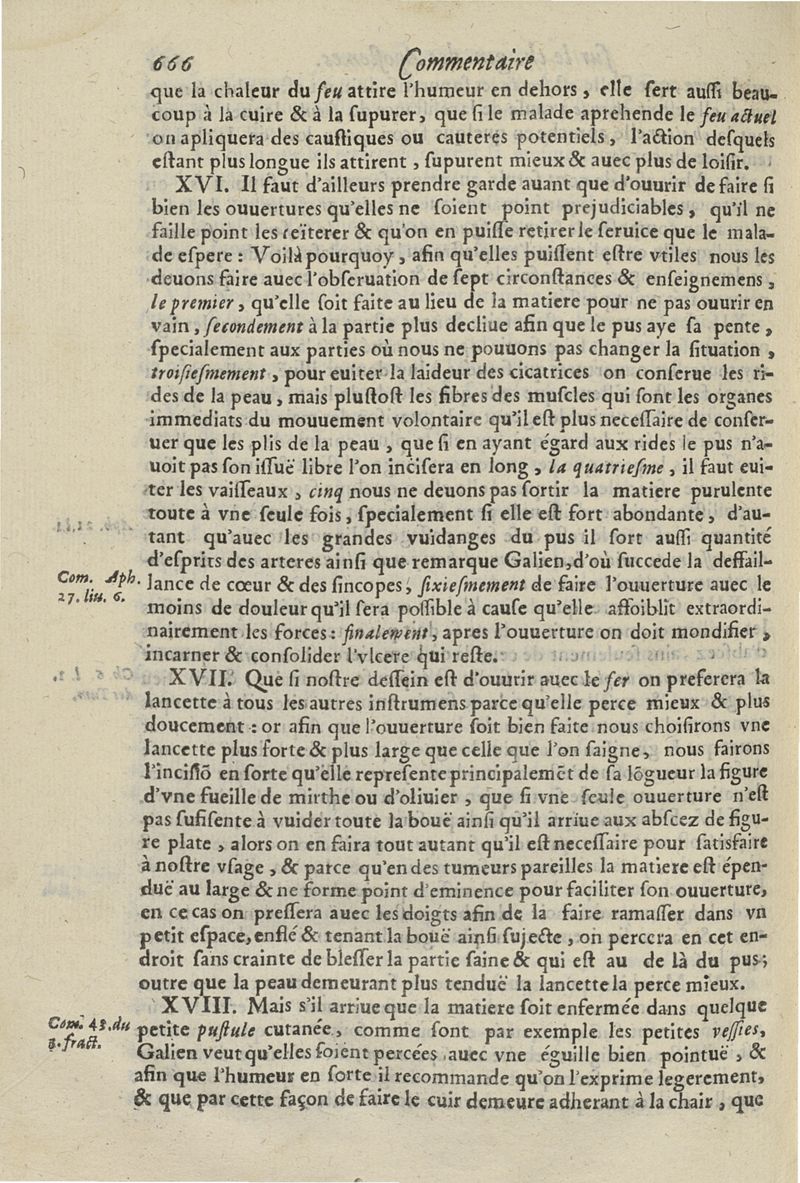 666 Commentaire
que la chaleur du feu attire l'humeur en dehors, elle ſert auſſi beau-
coup à la cuire & à la ſupurer, que ſi le malade aprehende le feu actuel
on apliquera des cauſtiques ou cauteres potentiels, l'action deſquels
eſtant plus longue ils attirent, ſupurent mieux & auec plus de loiſir.
XVI. Il faut d'ailleurs prendre garde auant que d'ouurir de faire ſi
bien les ouuertures qu'elles ne ſoient point prejudiciables, qu'il ne
faille point les reïterer & qu'on en puiſſe retirer le ſeruice que le mala-
de eſpere : Voilà pourquoy, afin qu'elles puiſſent eſtre vtiles nous les
deuons faire auec l'obſeruation de ſept circonſtances & enſeignemens,
le premier, qu'elle ſoit faite au lieu de la matiere pour ne pas ouurir en
vain, ſecondement à la partie plus decliue afin que le pus aye ſa pente,
ſpecialement aux parties où nous ne pouuons pas changer la ſituation,
troiſieſmement, pour euiter la laideur des cicatrices on conſerue les ri-
des de la peau, mais pluſtoſt les fibres des muſcles qui ſont les organes
immediats du mouuement volontaire qu'il eſt plus neceſſaire de conſer-
uer que les plis de la peau, que ſi en ayant égard aux rides le pus n'a-
uoit pas ſon iſſuë libre l'on inciſera en long, la quatrieſme, il faut eui-
ter les vaiſſeaux, cinq nous ne deuons pas ſortir la matiere purulente
toute à vne ſeule fois, ſpecialement ſi elle eſt fort abondante, d'au-
tant qu'auec les grandes vuidanges du pus il ſort auſſi quantité
d'eſprits des arteres ainſi que remarque Galien, d'où ſuccede la deffail-
Com. Aph.
27. liu. 6.
lance de cœur & des ſincopes, ſixieſmement de faire l'ouuerture auec le
moins de douleur qu'il ſera poſſible à cauſe qu'elle affoiblit extraordi-
nairement les forces : finalement, apres l'ouuerture on doit mondifier,
incarner & conſolider l'vlcere qui reſte.
XVII. Que ſi noſtre deſſein eſt d'ouurir auec le fer on preferera la
lancette à tous les autres inſtrumens parce qu'elle perce mieux & plus
doucement : or afin que l'ouuerture ſoit bien faite nous choiſirons vne
lancette plus forte & plus large que celle que l'on ſaigne, nous fairons
l'inciſiõ en ſorte qu'elle repreſente principalemẽt de ſa lõgueur la figure
d'vne fueille de mirthe ou d'oliuier, que ſi vne ſeule ouuerture n'eſt
pas ſufiſente à vuider toute la bouë ainſi qu'il arriue aux abſcez de figu-
re plate, alors on en faira tout autant qu'il eſt neceſſaire pour ſatisfaire
à noſtre vſage, & parce qu'en des tumeurs pareilles la matiere eſt épen-
duë au large & ne forme point d'eminence pour faciliter ſon ouuerture,
en ce cas on preſſera auec les doigts afin de la faire ramaſſer dans vn
petit eſpace, enflé & tenant la bouë ainſi ſujecte, on percera en cet en-
droit ſans crainte de bleſſer la partie ſaine & qui eſt au de là du pus;
outre que la peau demeurant plus tenduë la lancette la perce mieux.
XVIII. Mais s'il arriue que la matiere ſoit enfermée dans quelque
Com. 43. du
3. fract.
petite puſtule cutanée, comme ſont par exemple les petites veſſies,
Galien veut qu'elles ſoient percées auec vne éguille bien pointuë, &
afin que l'humeur en ſorte il recommande qu'on l'exprime legerement,
& que par cette façon de faire le cuir demeure adherant à la chair, que